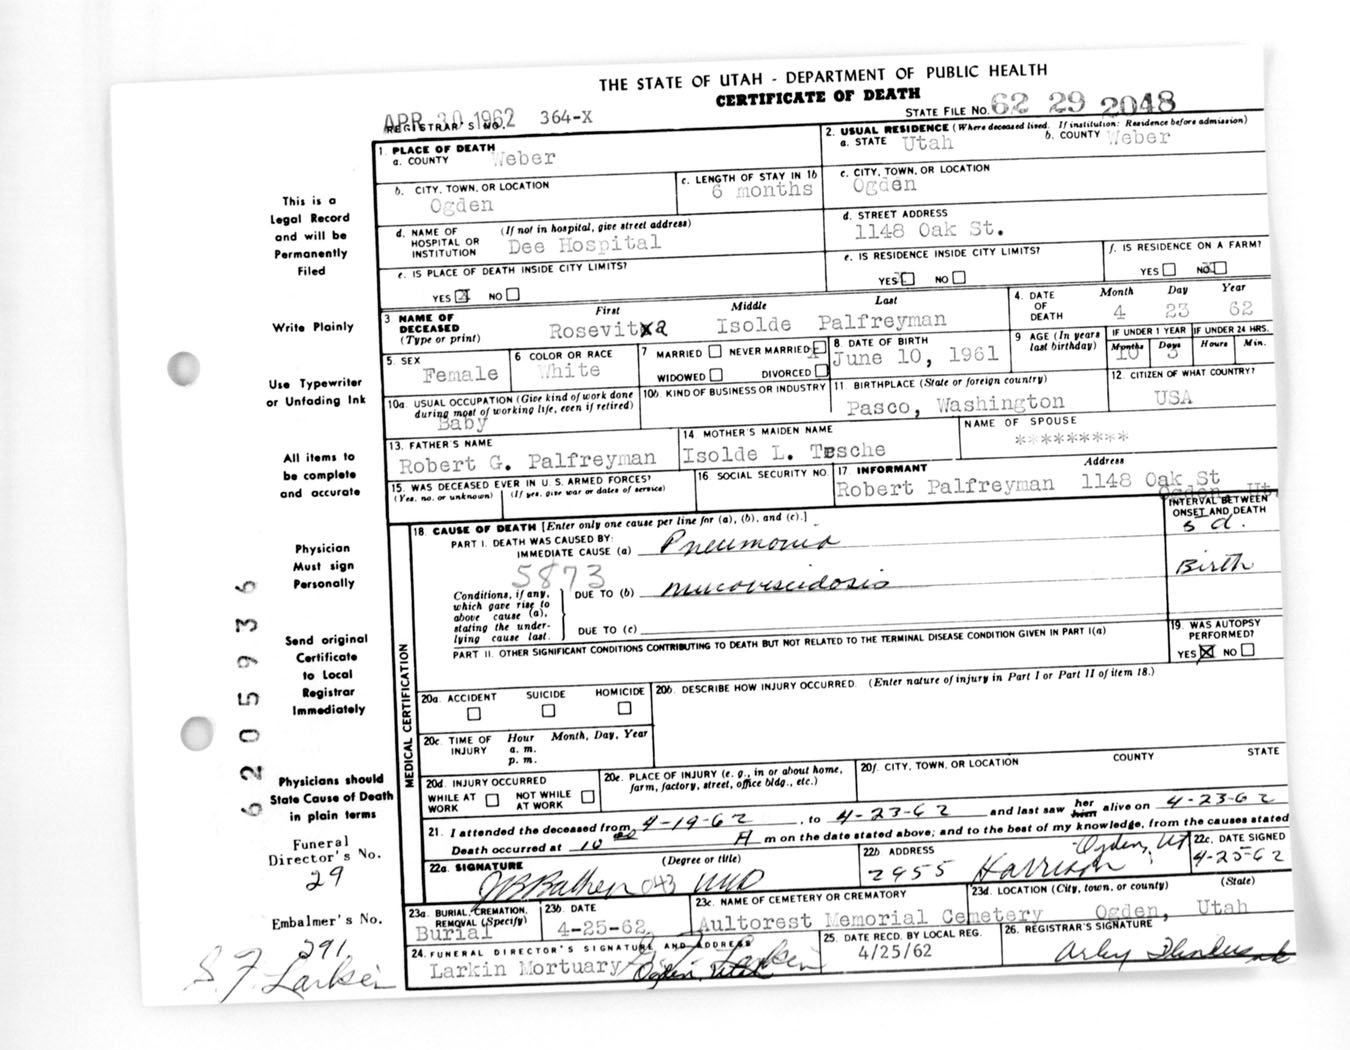 THE STATE OF UTAH - DEPARTMENT OF PUBLIC HEALTH
CERTIFICATE OF DEATH
APR 30 1962 364-X
REGISTRAR'S NO.
STATE FILE NO. 62 29 2048
This is a
Legal Record
and will be
Permanently
Filed
Write Plainly
Use Typewriter
or Unfading Ink
All items to
be complete
and accurate
Physician
Must sign
Personally
Send original
Certificate
to Local
Registrar
Immediately
Physicians should
State Cause of Death
in plain terms
Funeral
Director's No.
29
Embalmer's No.
291
S. F. Larkin
6205936
1. PLACE OF DEATH
a. COUNTY Weber
2. USUAL RESIDENCE (Where deceased lived. If institution: Residence before admission)
a. STATE Utah b. COUNTY Weber
b. CITY, TOWN, OR LOCATION
Ogden
c. LENGTH OF STAY IN 1b
6 months
c. CITY, TOWN, OR LOCATION
Ogden
d. NAME OF HOSPITAL OR INSTITUTION (If not in hospital, give street address)
Dee Hospital
d. STREET ADDRESS
1148 Oak St.
e. IS PLACE OF DEATH INSIDE CITY LIMITS?
YES X NO
e. IS RESIDENCE INSIDE CITY LIMITS?
YES X NO
f. IS RESIDENCE ON A FARM?
YES NO X
3 NAME OF DECEASED (Type or print)
First Middle Last
Rosevitxa Isolde Palfreyman
4. DATE OF DEATH
Month Day Year
4 23 62
5. SEX
Female
6 COLOR OR RACE
White
7 MARRIED NEVER MARRIED X
WIDOWED DIVORCED
8. DATE OF BIRTH
June 10, 1961
9 AGE (In years last birthday)
IF UNDER 1 YEAR IF UNDER 24 HRS.
Months Days Hours Min.
10
10a. USUAL OCCUPATION (Give kind of work done during most of working life, even if retired)
Baby
10b. KIND OF BUSINESS OR INDUSTRY
11. BIRTHPLACE (State or foreign country)
Pasco, Washington
12. CITIZEN OF WHAT COUNTRY?
USA
13. FATHER'S NAME
Robert G. Palfreyman
14. MOTHER'S MAIDEN NAME
Isolde L. Tesche
NAME OF SPOUSE
*********
15. WAS DECEASED EVER IN U.S. ARMED FORCES?
(Yes, no. or unknown) (If yes, give war or dates of service)
16. SOCIAL SECURITY NO.
17 INFORMANT Address
Robert Palfreyman 1148 Oak St
Ogden Ut
MEDICAL CERTIFICATION
18. CAUSE OF DEATH [Enter only one cause per line for (a), (b), and (c).]
INTERVAL BETWEEN ONSET AND DEATH
PART I. DEATH WAS CAUSED BY:
IMMEDIATE CAUSE (a) Pneumonia 5 d.
5873
Conditions, if any, which gave rise to above cause (a), stating the underlying cause last.
DUE TO (b) mucoviscidosis Birth
DUE TO (c)
PART II. OTHER SIGNIFICANT CONDITIONS CONTRIBUTING TO DEATH BUT NOT RELATED TO THE TERMINAL DISEASE CONDITION GIVEN IN PART I(a)
19. WAS AUTOPSY PERFORMED?
YES X NO
20a. ACCIDENT SUICIDE HOMICIDE
20b. DESCRIBE HOW INJURY OCCURRED. (Enter nature of injury in Part I or Part II of item 18.)
20c. TIME OF INJURY Hour Month, Day, Year
a. m.
p. m.
20d. INJURY OCCURRED
WHILE AT WORK NOT WHILE AT WORK
20e. PLACE OF INJURY (e. g., in or about home, farm, factory, street, office bldg., etc.)
20f. CITY, TOWN, OR LOCATION COUNTY STATE
21. I attended the deceased from 4-19-62, to 4-23-62 and last saw her him alive on 4-23-62
Death occurred at 10 A m on the date stated above; and to the best of my knowledge, from the causes stated
22a. SIGNATURE (Degree or title)
043 MD
22b ADDRESS
2955 Harrison Ogden, Ut
22c. DATE SIGNED
4-25-62
23a. BURIAL, CREMATION, REMOVAL (Specify)
Burial
23b. DATE
4-25-62
23c. NAME OF CEMETERY OR CREMATORY
Aultorest Memorial Cemetery
23d. LOCATION (City, town, or county) (State)
Ogden, Utah
24. FUNERAL DIRECTOR'S SIGNATURE AND ADDRESS
Larkin Mortuary Larkin
Ogden, Utah
25. DATE RECD. BY LOCAL REG.
4/25/62
26. REGISTRAR'S SIGNATURE